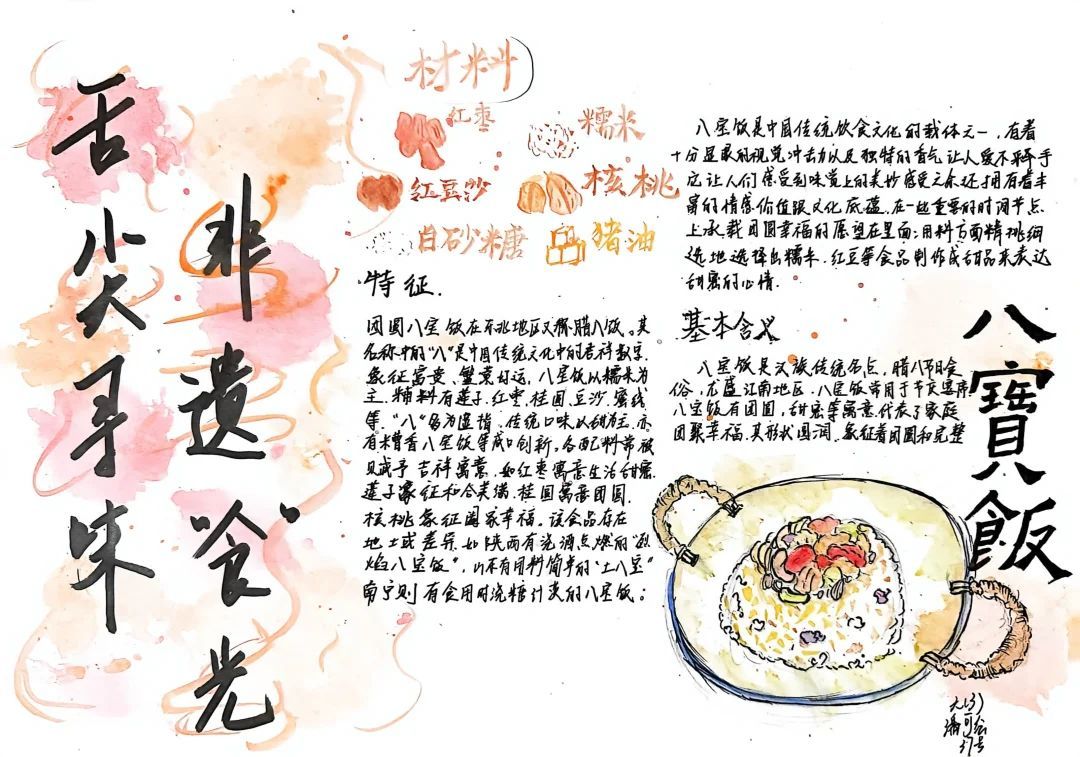 舌尖寻味
非遗“食”光
材料
红枣
糯米
红豆沙
核桃
白砂糖
猪油
特征
团圆八宝饭在东北地区又称腊八饭。其
名称中的“八”是中国传统文化中的吉祥数字,
象征富贵、繁荣好运，八宝饭以糯米为
主，辅料有莲子、红枣、桂圆、豆沙、蜜线
等，“八”多为虚指，传统口味以甜为主，亦
有木樽香八宝饭等咸口创新。各配料常被
赋予吉祥寓意，如红枣寓意生活甜蜜
莲子象征和合美满，桂圆寓意团圆，
核桃象征阖家幸福。该食品存在
地域差异，如陕西有浇酒点燃的“烈
焰八宝饭”，川有用料简单的“土八宝”
南宁则有食用时浇糖汁类的八宝饭；
八宝饭是中国传统饮食文化的载体之一，有着
十分显眼的视觉冲击力以及独特的香气让人爱不释手
它让人们感受到味觉上的美妙感受之余还拥有着丰
富的情感价值跟文化底蕴，在一些重要的时间节点
上承载团圆幸福的愿望在里面；用料方面精挑细
选地选择出糯米、红豆等食品制作成甜品来表达
甜蜜的心情.
基本含义
八宝饭是汉族传统名点，腊八节日食
俗，尤盛江南地区，八宝饭常用于节庆宴席
八宝饭有团圆，甜蜜等寓意代表了家庭
团聚幸福，其形状圆润，象征着团圆和完整
八寶飯